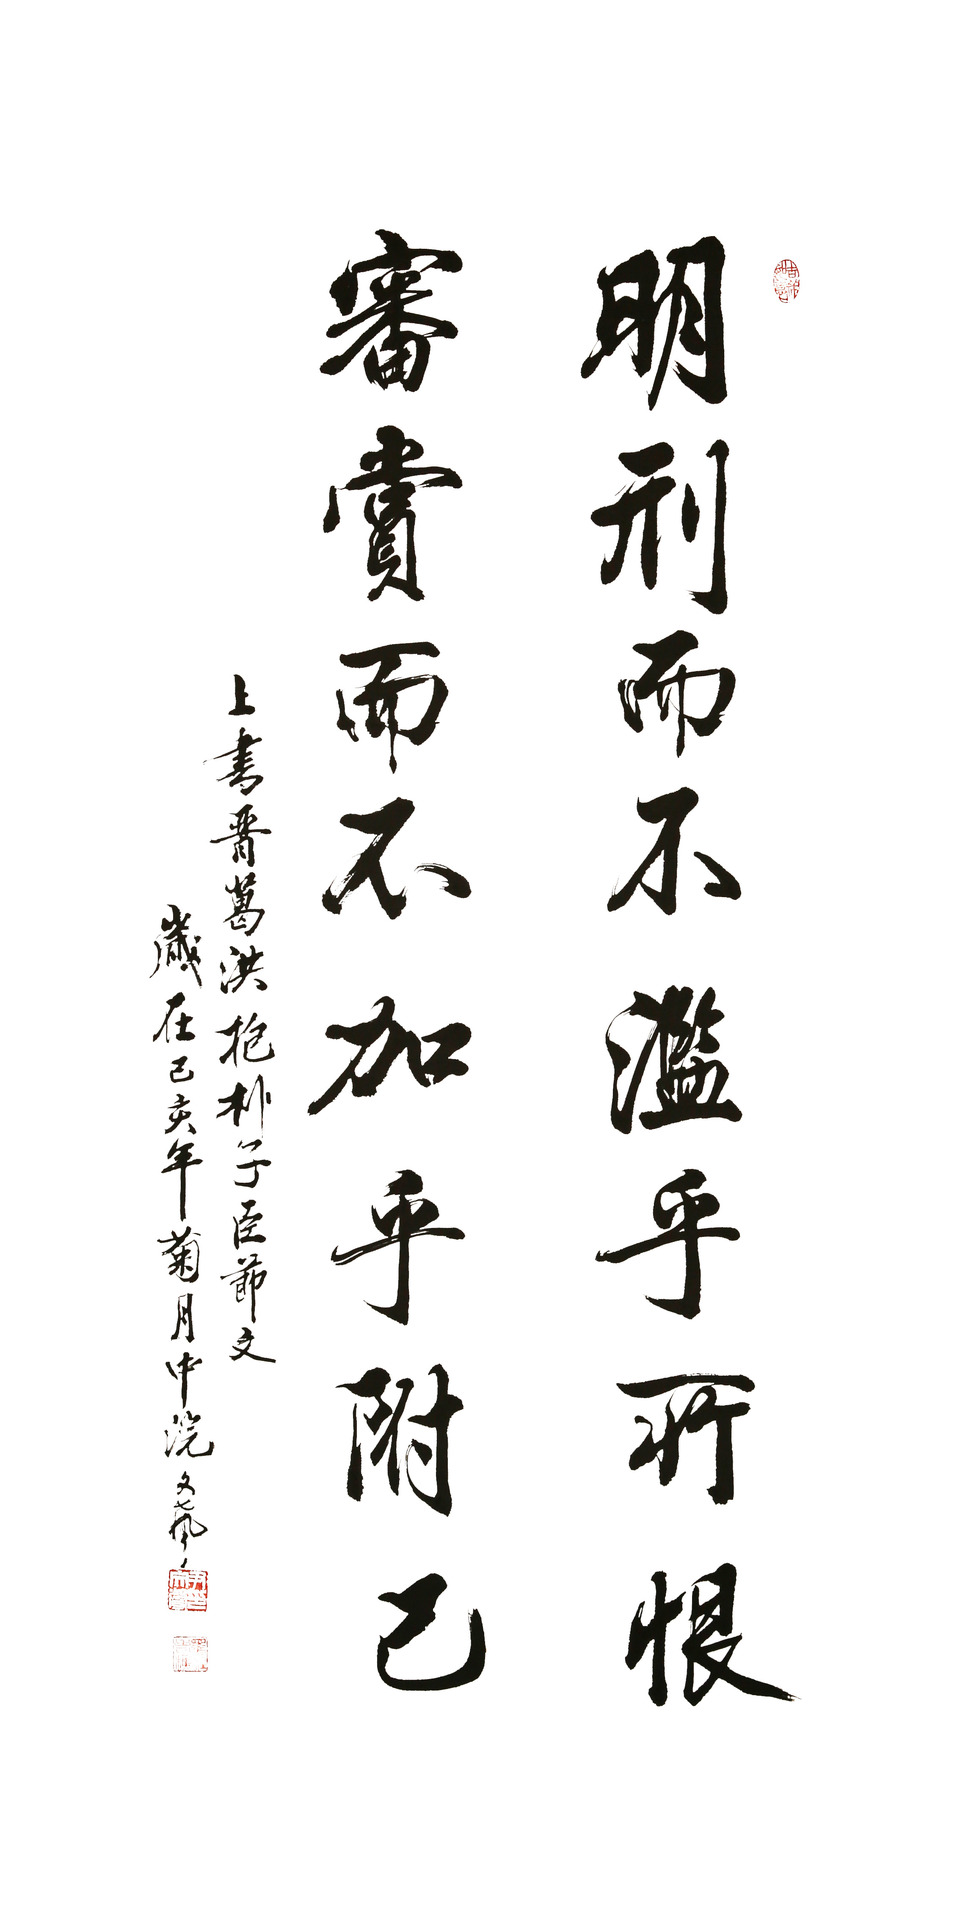 明刑而不濫乎所恨
審賞而不加乎附己
上書晉葛洪抱朴子臣節文
歲在己亥年菊月中浣文